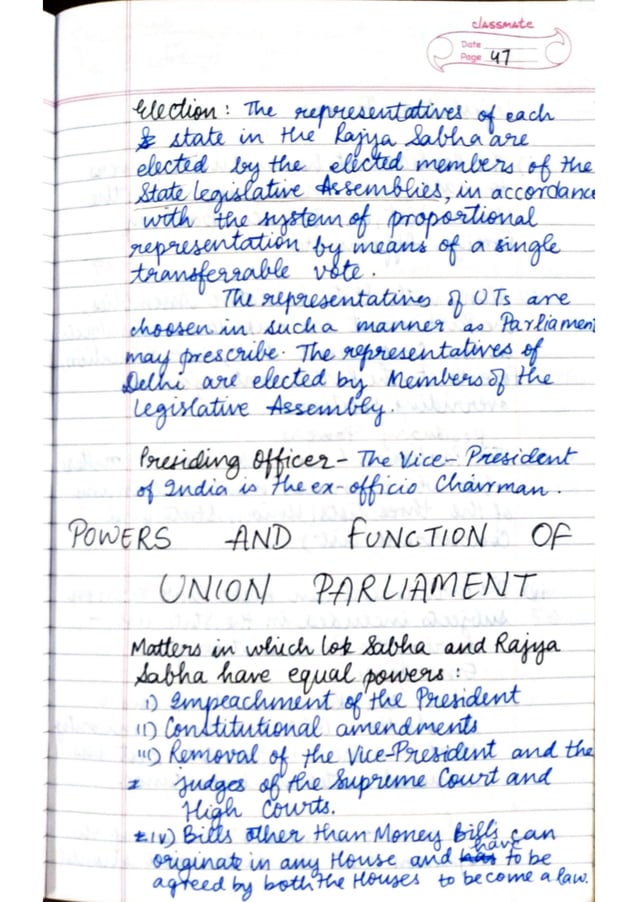 classmate
Date
Page 47
Election: The representatives of each
state in the Rajya Sabha are
elected by the elected members of the
State Legislative Assemblies, in accordance
with the system of proportional
representation by means of a single
transferrable vote.
The representatives of UTs are
choosen in such a manner as Parliament
may prescribe. The representatives of
Delhi are elected by Members of the
Legislative Assembly.
Presiding Officer - The Vice-President
of India is the ex-officio Chairman.
POWERS AND FUNCTION OF
UNION PARLIAMENT
Matters in which Lok Sabha and Rajya
Sabha have equal powers:
i) Impeachment of the President
ii) Constitutional amendments
iii) Removal of the Vice-President and the
judges of the Supreme Court and
High Courts.
iv) Bills other than Money Bills can
originate in any House and have to be
agreed by both the Houses to become a law.